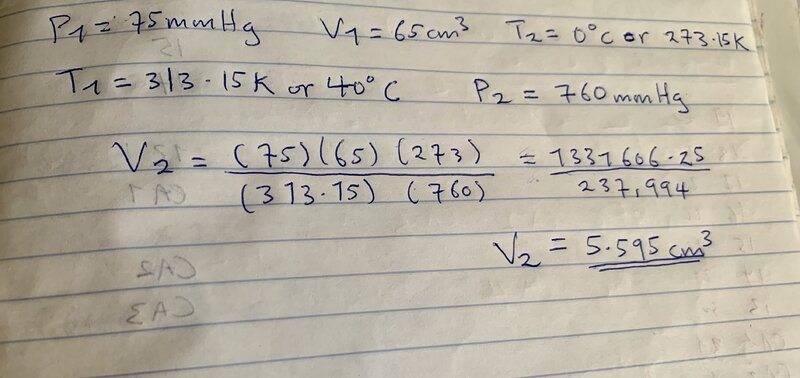 P1 = 75mmHg V1 = 65cm³ T2 = 0°C or 273.15K
T1 = 313.15K or 40°C P2 = 760mmHg
V2 = (75)(65)(273) / (313.15)(760) = 1331606.25 / 237,994
V2 = 5.595cm³
CA1
CA2
CA3